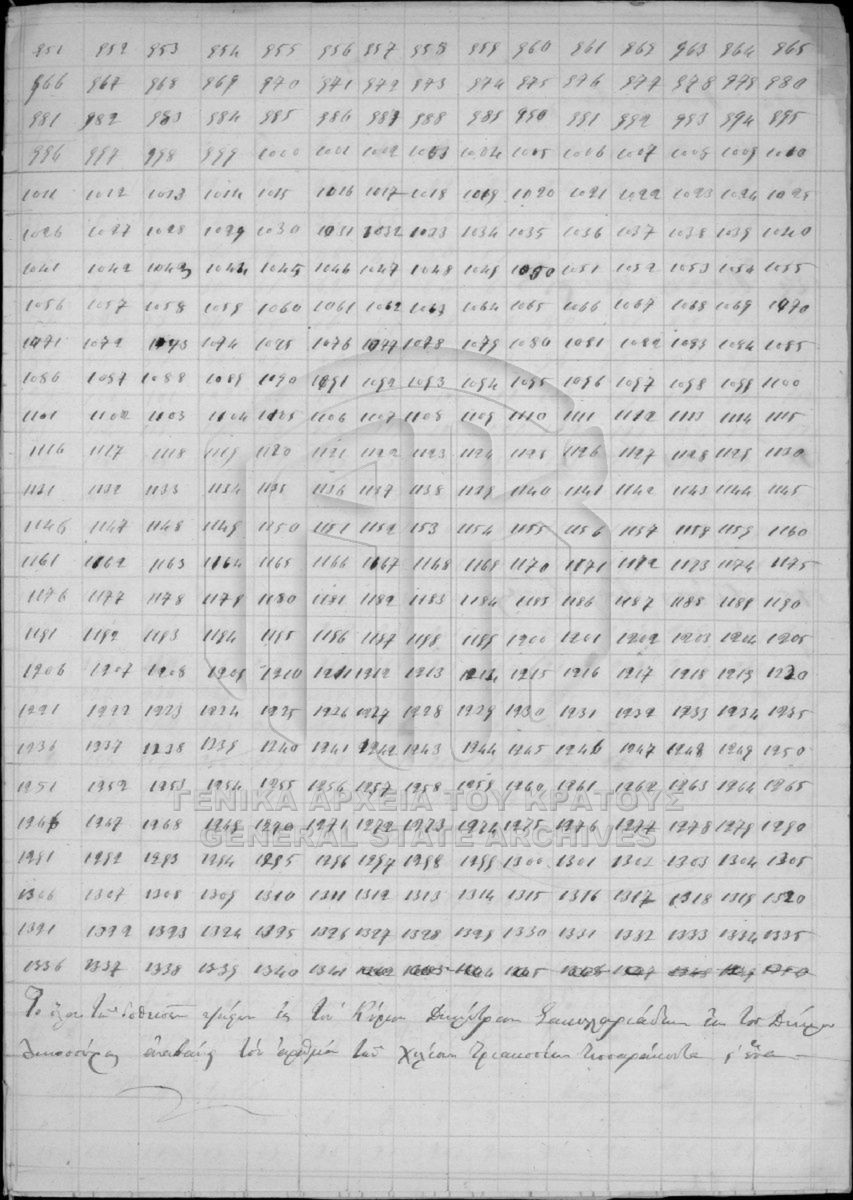 951 952 953 954 955 956 957 958 959 960 961 962 963 964 965
966 967 968 969 970 971 972 973 974 975 976 977 978 979 980
981 982 983 984 985 986 987 988 989 990 991 992 993 994 995
996 997 998 999 1000 1001 1002 1003 1004 1005 1006 1007 1008 1009 1010
1011 1012 1013 1014 1015 1016 1017 1018 1019 1020 1021 1022 1023 1024 1025
1026 1027 1028 1029 1030 1031 1032 1033 1034 1035 1036 1037 1038 1039 1040
1041 1042 1043 1044 1045 1046 1047 1048 1049 1050 1051 1052 1053 1054 1055
1056 1057 1058 1059 1060 1061 1062 1063 1064 1065 1066 1067 1068 1069 1070
1071 1072 1073 1074 1075 1076 1077 1078 1079 1080 1081 1082 1083 1084 1085
1086 1087 1088 1089 1090 1091 1092 1093 1094 1095 1096 1097 1098 1099 1100
1101 1102 1103 1104 1105 1106 1107 1108 1109 1110 1111 1112 1113 1114 1115
1116 1117 1118 1119 1120 1121 1122 1123 1124 1125 1126 1127 1128 1129 1130
1131 1132 1133 1134 1135 1136 1137 1138 1139 1140 1141 1142 1143 1144 1145
1146 1147 1148 1149 1150 1151 1152 153 1154 1155 1156 1157 1158 1159 1160
1161 1162 1163 1164 1165 1166 1167 1168 1169 1170 1171 1172 1173 1174 1175
1176 1177 1178 1179 1180 1181 1182 1183 1184 1185 1186 1187 1188 1189 1190
1191 1192 1193 1194 1195 1196 1197 1198 1199 1200 1201 1202 1203 1204 1205
1206 1207 1208 1209 1210 1211 1212 1213 1214 1215 1216 1217 1218 1219 1220
1221 1222 1223 1224 1225 1226 1227 1228 1229 1230 1231 1232 1233 1234 1235
1236 1237 1238 1239 1240 1241 1242 1243 1244 1245 1246 1247 1248 1249 1250
1251 1252 1253 1254 1255 1256 1257 1258 1259 1260 1261 1262 1263 1264 1265
1266 1267 1268 1269 1270 1271 1272 1273 1274 1275 1276 1277 1278 1279 1280
1281 1282 1283 1284 1285 1286 1287 1288 1289 1300 1301 1302 1303 1304 1305
1306 1307 1308 1309 1310 1311 1312 1313 1314 1315 1316 1317 1318 1319 1320
1321 1322 1323 1324 1325 1326 1327 1328 1329 1330 1331 1332 1333 1334 1335
1336 1337 1338 1339 1340 1341
Το όλον των δοθεισών ψήφων εις τον Κύριον Δημήτριον Σακελλαριάδην εις τον Δήμον
Λυκοσούρας αναβαίνει τον αριθμόν των χιλίων τριακοσίων τεσσαράκοντα ενός
ΓΕΝΙΚΑ ΑΡΧΕΙΑ ΤΟΥ ΚΡΑΤΟΥΣ
GENERAL STATE ARCHIVES